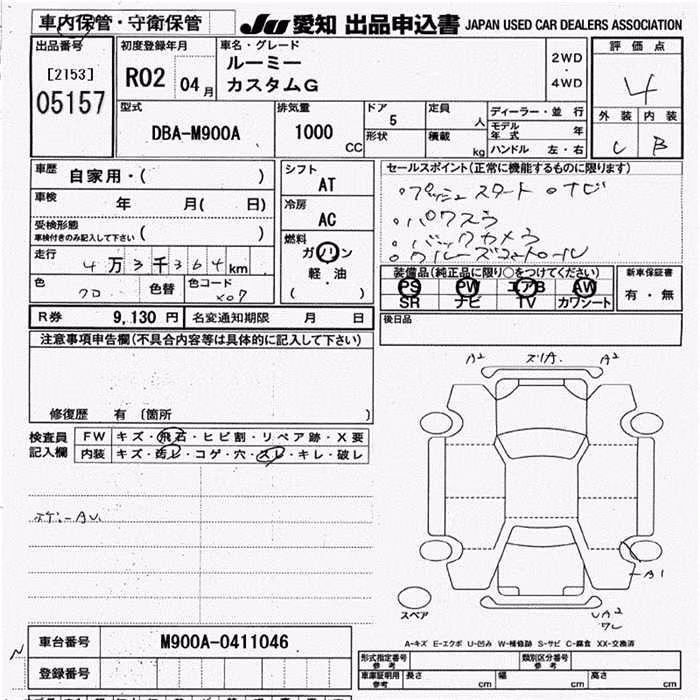 車内保管・守衛保管
JU 愛知 出品申込書 JAPAN USED CAR DEALERS ASSOCIATION
出品番号
[2153]
05157
初度登録年月
R02 04月
車名・グレード
ルーミー
カスタムG
2WD
・
4WD
評価点
4
外装 内装
C B
型式
DBA-M900A
排気量
1000 CC
ドア
5
形状
定員
人
積載
kg
ディーラー・並行
モデル年式 年
ハンドル 左・右
車歴 自家用・( )
車検 年 月( 日)
受検形態
車検付きのみ記入して下さい ( )
走行 4万3千364km
色 クロ 色替 色コード X07
R券 9,130円 名変通知期限 月 日
シフト
AT
冷房
AC
燃料
ガソリン
軽・油
( )
セールスポイント(正常に機能するものに限ります)
・プッシュスタート ・ナビ
・パワスラ
・バックカメラ
・クルーズコントロール
装備品(純正品に限り○をつけてください)
PS PW エアB AW
SR ナビ TV カワシート
新車保証書
有・無
後日品
注意事項申告欄(不具合内容等は具体的に記入して下さい)
修復歴 有 〔箇所 〕
検査員記入欄
FW キズ・飛石・ヒビ割・リペア跡・X要
内装 キズ・汚レ・コゲ・穴・スレ・キレ・破レ
A2 A2
A1
UA2
スペア
A-キズ E-エクボ U-凹み W-補修跡 S-サビ C-腐食 XX-交換済
車台番号 M900A-0411046
登録番号
形式指定番号 参考
類別区分番号 参考
車庫証明用 参考 長さ cm 幅 cm 高さ cm